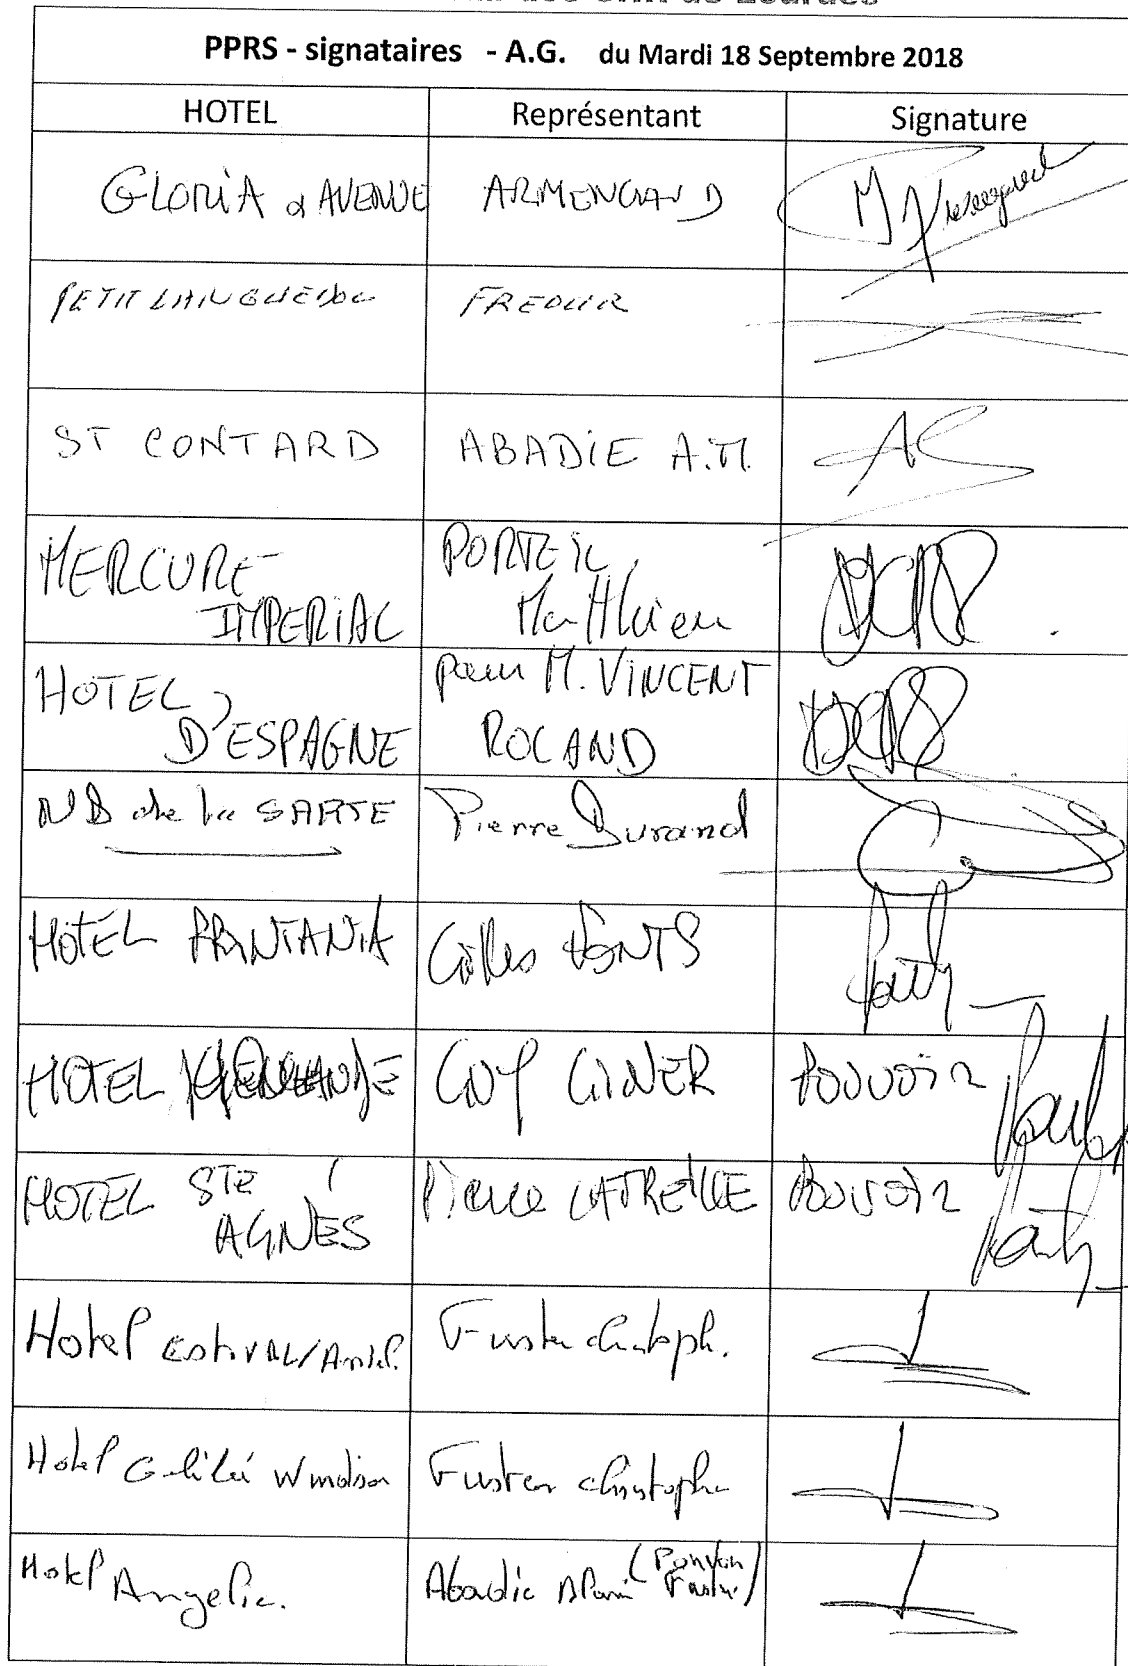 PPRS - signataires - A.G. du Mardi 18 Septembre 2018
HOTEL Représentant Signature
GLORIA & AVENUE ARMENGAUD
PETIT LANGUEDOC
ST CONTARD ABADIE A.M.
MERCURE PORTEIL
IMPERIAL Matthieu
HOTEL pour M. VINCENT
D'ESPAGNE ROLAND
ND de la SARTE Pierre Durand
HOTEL PRINTANIA Gilles FONTS
HOTEL GUY GINER POUVOIR
HOTEL STE Pierre LATREILLE POUVOIR
AGNES
Hotel ESTIVAL/ Fuster christoph.
Hotel Galilé Windsor Fuster christophe
Hotel Angelic. Abadie Alain (Pouvoir
Fuster)